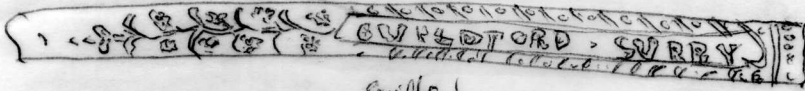 GUILDFORD · SURRY